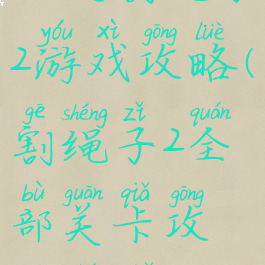 yóu xì gōng lüè
2游戏攻略(
gē shéng zǐ quán
割绳子2全
bù guān qiǎ gōng
部关卡攻